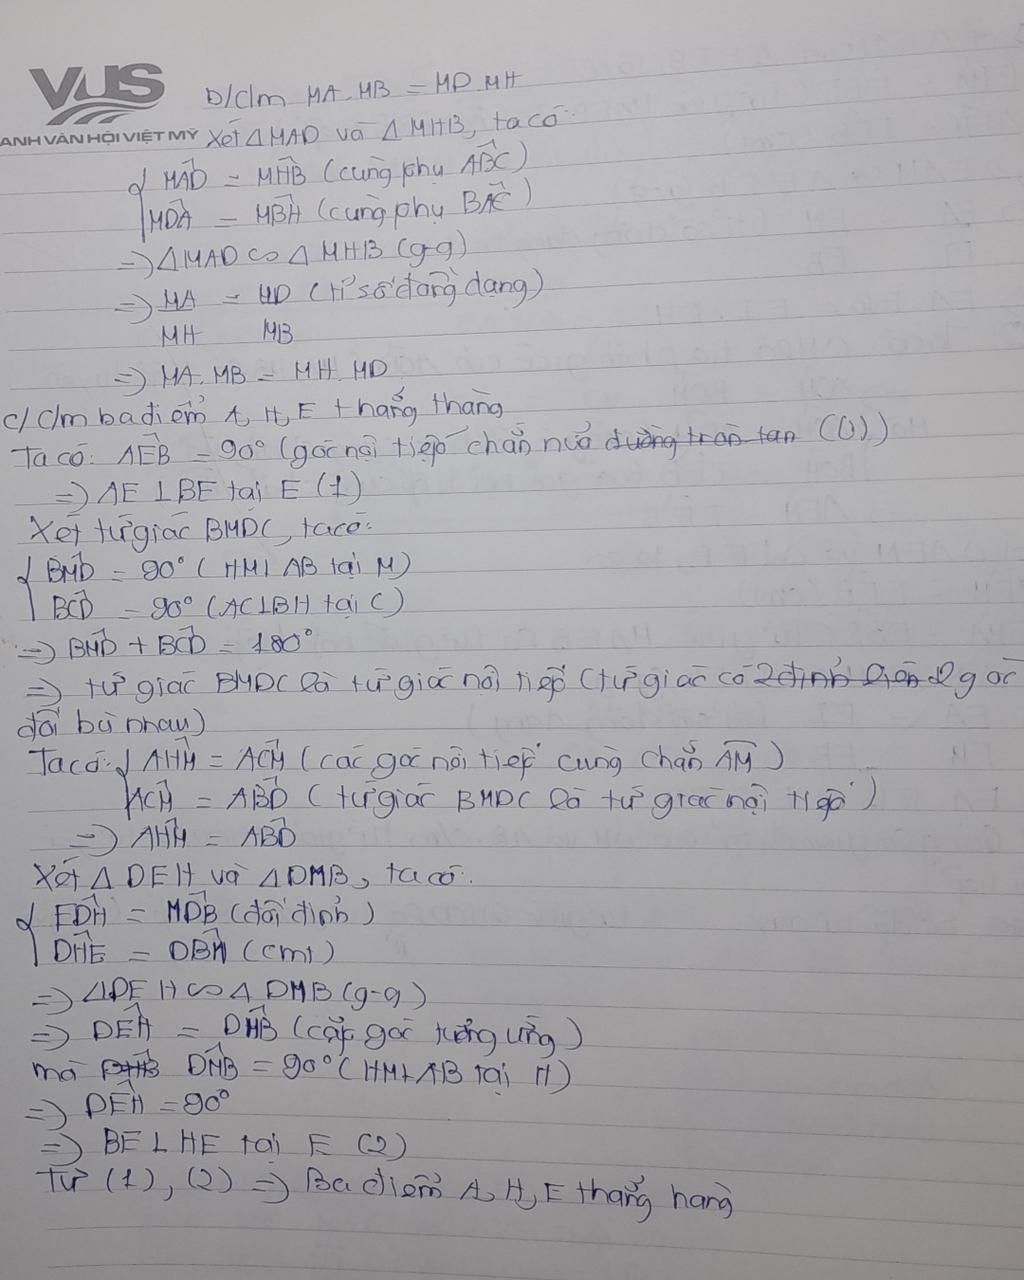 VUS
ANH VĂN HỘI VIỆT MỸ
b/ c/m MA.MB = MD.MH
Xét ΔMAD và ΔMHB, ta có:
{ MAD̂ = MHB̂ (cùng phụ ABĈ)
MDÂ = MBĤ (cùng phụ BAĈ)
=> ΔMAD ∽ ΔMHB (g-g)
=> MA/MH = MD/MB (tỉ số đồng dạng)
=> MA.MB = MH.MD
c/ c/m ba điểm A, H, E thẳng thàng
Ta có: AEB̂ = 90° (góc nội tiếp chắn nửa đường tròn tan (O))
=> AE ⊥ BE tại E (1)
Xét tứ giác BMDC, ta có:
{ BMD̂ = 90° (HM⊥AB tại M)
BCD̂ = 90° (AC⊥BH tại C)
=> BMD̂ + BCD̂ = 180°
=> tứ giác BMDC là tứ giác nội tiếp (tứ giác có 2 đỉnh liên 2 góc
đối bù nhau)
Ta có: { AHM̂ = ACM̂ (các góc nội tiếp cùng chắn AM)
ACM̂ = ABD̂ (tứ giác BMDC là tứ giác nội tiếp)
=> AHM̂ = ABD̂
Xét Δ DEH và ΔDMB, ta có:
{ EDĤ = MDB̂ (đối đỉnh)
DHÊ = DBM̂ (cmt)
=> ΔDEH ∽ Δ DMB (g-g)
=> DEĤ = DMB̂ (cặp góc tương ứng)
mà DMB̂ = 90° (HM⊥AB tại M)
=> DEĤ = 90°
=> BE ⊥ HE tại E (2)
Từ (1), (2) => Ba điểm A, H, E thẳng hàng